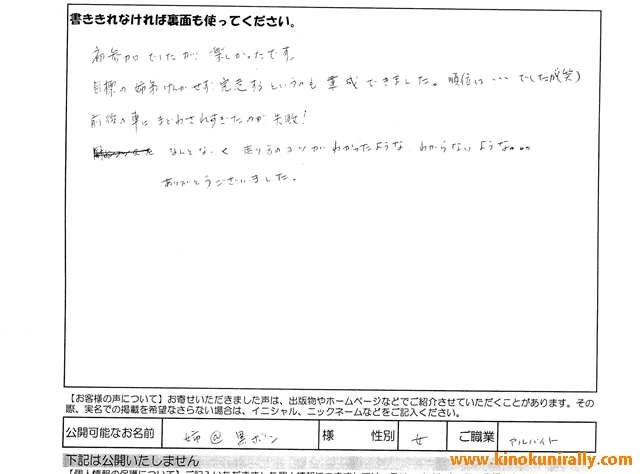 書ききれなければ裏面も使ってください。
初参加でしたが、楽しかったです。
目標の姉弟けんかせず完走するというのも達成できました。順位は・・・でしたが(笑)
前後の車にまどわされすぎたのが失敗!
なんとなーく 走り方のコツがわかったような わからないような。。。
ありがとうございました。
【お客様の声について】お寄せいただきました声は、出版物やホームページなどでご紹介させていただくことがあります。その
際、実名での掲載を希望なさらない場合は、イニシャル、ニックネームなどをご記入ください。
公開可能なお名前 姉@黒ボン 様 性別 女 ご職業 アルバイト
下記は公開いたしません
www.kinokunirally.com